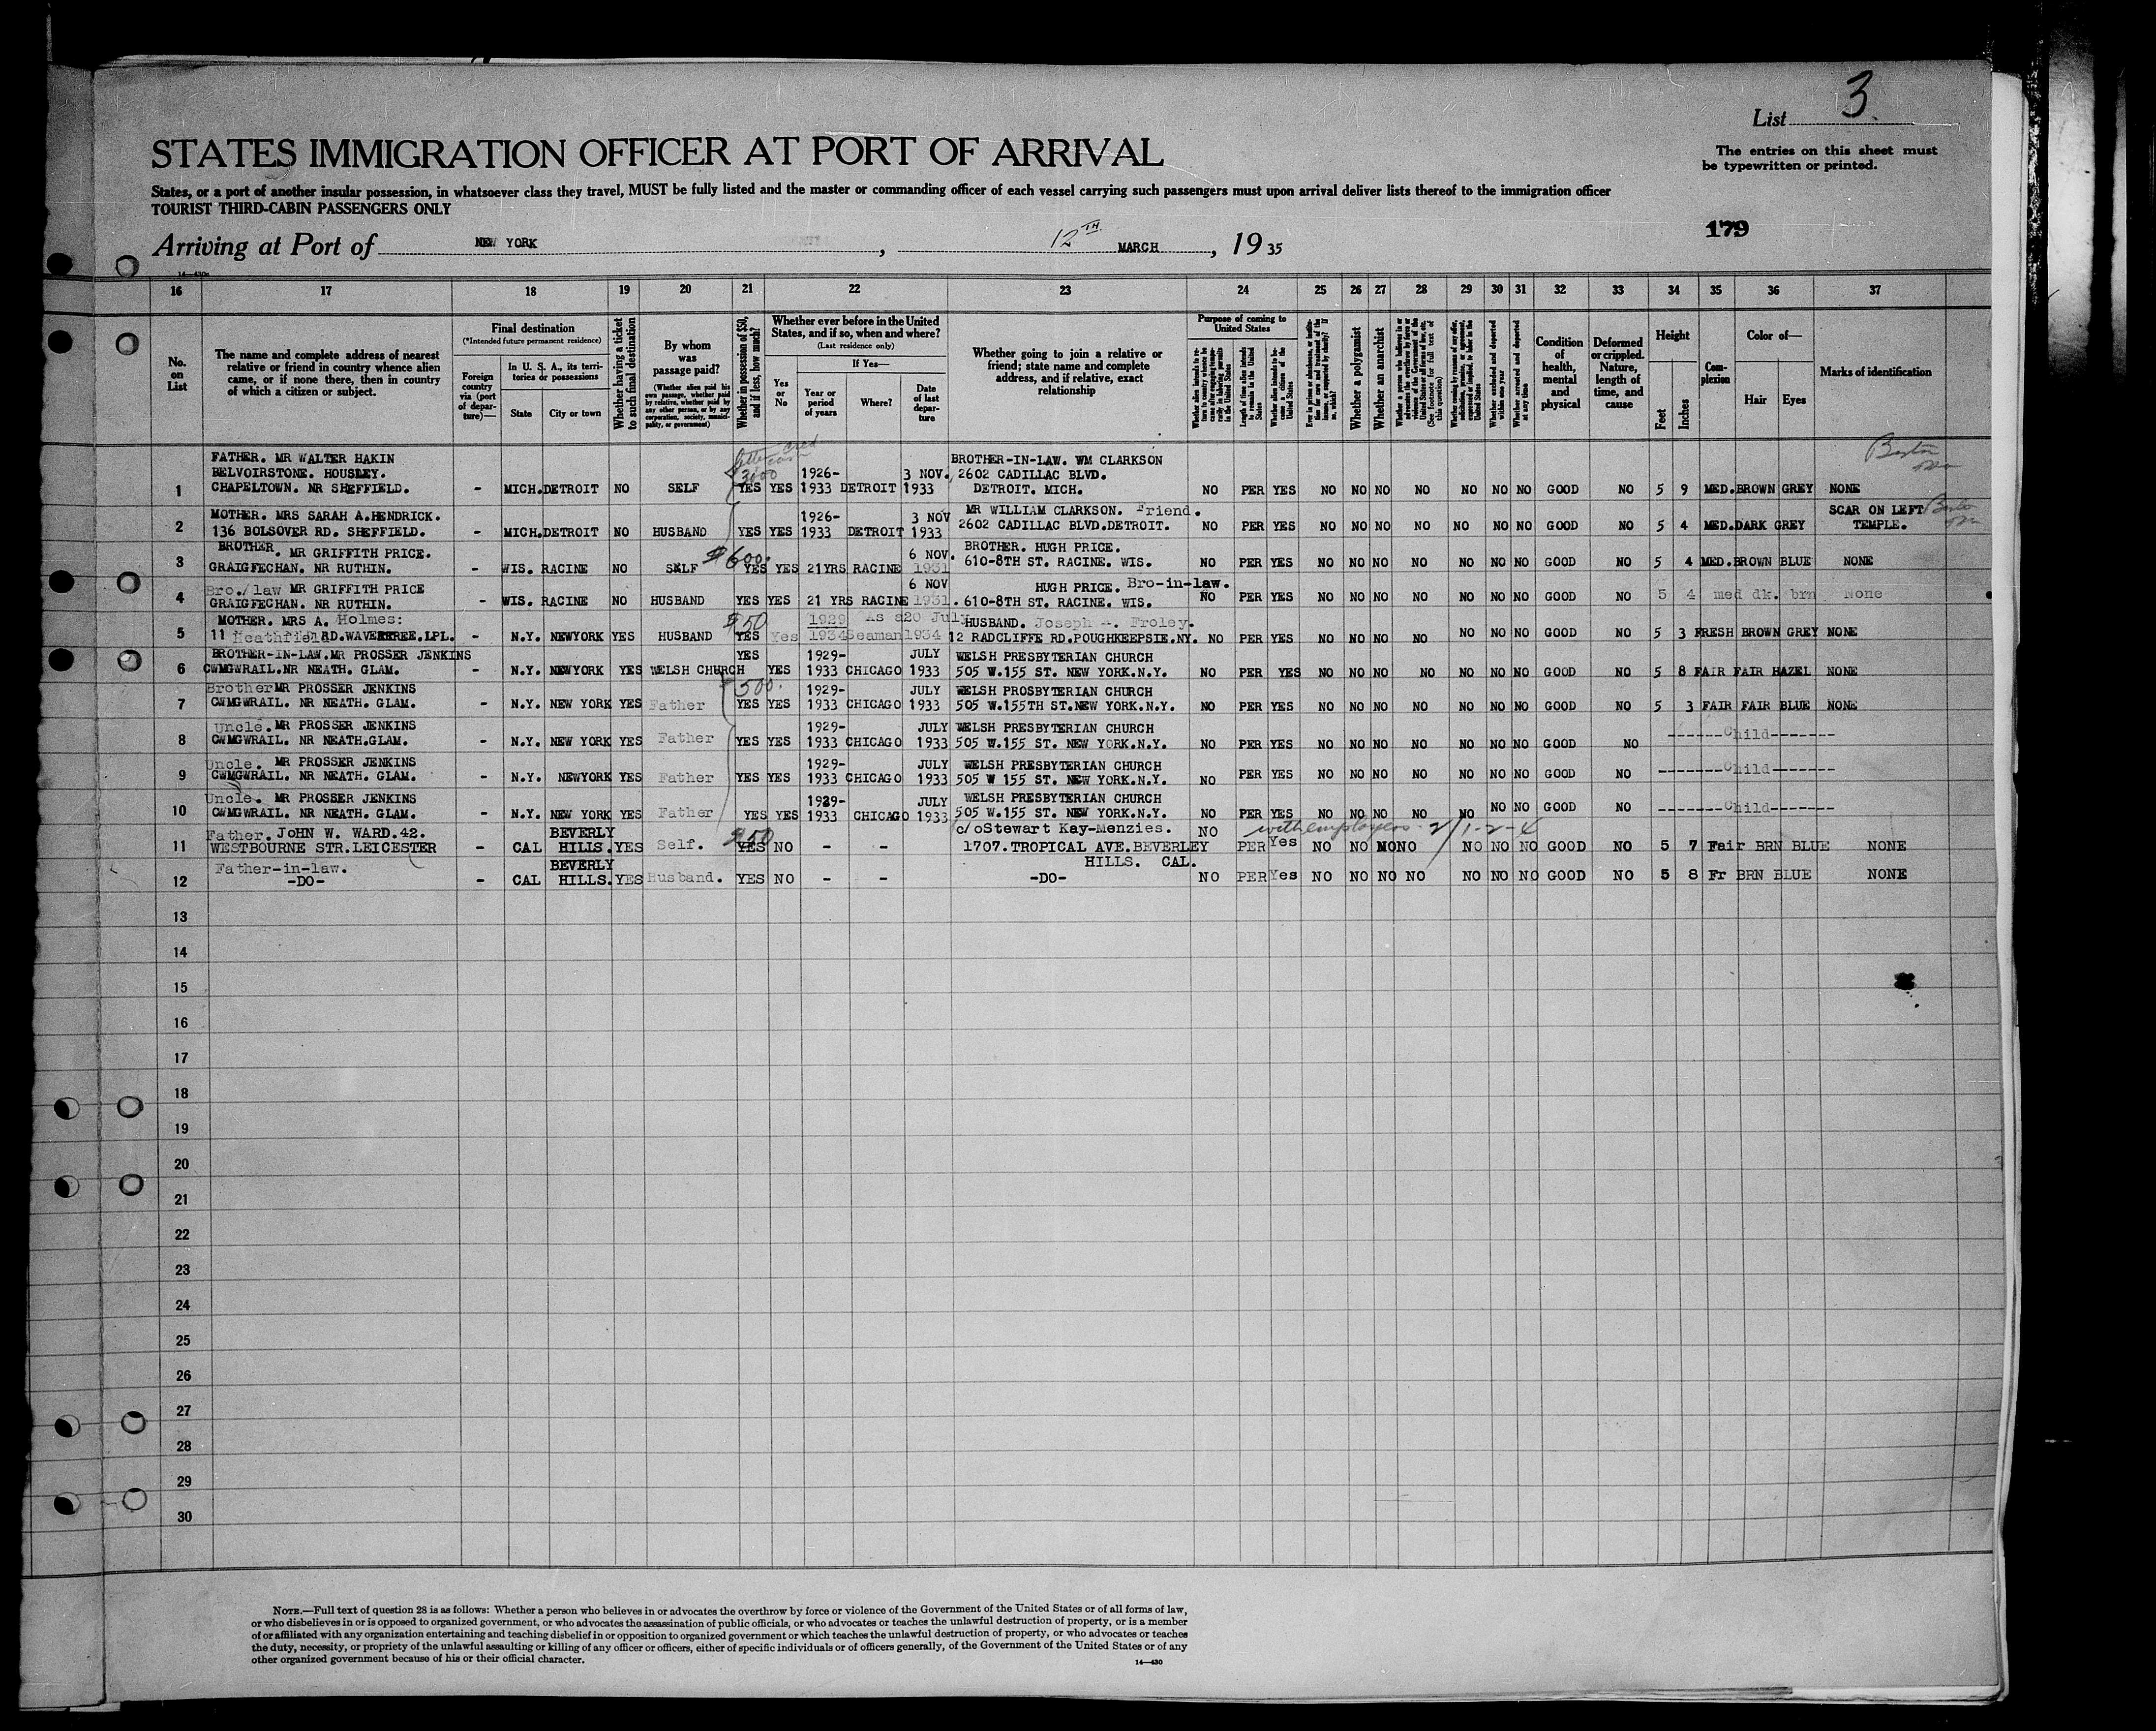 List 3.
STATES IMMIGRATION OFFICER AT PORT OF ARRIVAL
The entries on this sheet must
be typewritten or printed.
States, or a port of another insular possession, in whatsoever class they travel, MUST be fully listed and the master or commanding officer of each vessel carrying such passengers must upon arrival deliver lists thereof to the immigration officer
TOURIST THIRD-CABIN PASSENGERS ONLY
179
Arriving at Port of NEW YORK, 12TH MARCH, 1935
16 17 18 19 20 21 22 23 24 25 26 27 28 29 30 31 32 33 34 35 36 37
No. on List
The name and complete address of nearest relative or friend in country whence alien came, or if none there, then in country of which a citizen or subject.
Final destination
(*Intended future permanent residence)
Foreign country via (port of departure)—
In U. S. A., its territories or possessions
State
City or town
Whether having a ticket to such final destination
By whom was passage paid?
(Whether alien paid his own passage, whether paid by relative, whether paid by any other person, or by any corporation, society, municipality, or government)
Whether in possession of $50, and if less, how much?
Whether ever before in the United States, and if so, when and where?
(Last residence only)
Yes or No
If Yes—
Year or period of years
Where?
Date of last departure
Whether going to join a relative or friend; state name and complete address, and if relative, exact relationship
Purpose of coming to United States
Length of time alien intends to remain in the United States
Whether alien intends to become a citizen of the United States
Whether a polygamist
Whether an anarchist
(See footnote for full text of this question)
Whether excluded and deported within one year
Whether arrested and deported at any time
Condition of health, mental and physical
Deformed or crippled. Nature, length of time, and cause
Height
Feet
Inches
Complexion
Color of—
Hair
Eyes
Marks of identification
FATHER. MR WALTER HAKIN BROTHER-IN-LAW. WM CLARKSON
BELVOIRSTONE. HOUSLEY. 1926- 3 NOV. 2602 CADILLAC BLVD.
1 CHAPELTOWN. NR SHEFFIELD. - MICH. DETROIT NO SELF YES YES 1933 DETROIT 1933 DETROIT. MICH. NO PER YES NO NO NO NO NO NO NO GOOD NO 5 9 MED. BROWN GREY NONE
MOTHER. MRS SARAH A.HENDRICK. 1926- 3 NOV MR WILLIAM CLARKSON. Friend. SCAR ON LEFT
2 136 BOLSOVER RD. SHEFFIELD. - MICH. DETROIT NO HUSBAND YES YES 1933 DETROIT 1933 2602 CADILLAC BLVD.DETROIT. NO PER YES NO NO NO NO NO NO NO GOOD NO 5 4 MED. DARK GREY TEMPLE.
BROTHER. MR GRIFFITH PRICE. $600. 6 NOV. BROTHER. HUGH PRICE.
3 GRAIGFECHAN. NR RUTHIN. - WIS. RACINE NO SELF YES YES 21YRS RACINE 1931 610-8TH ST. RACINE. WIS. NO PER YES NO NO NO NO NO NO NO GOOD NO 5 4 MED. BROWN BLUE NONE
Bro./law MR GRIFFITH PRICE 6 NOV HUGH PRICE. Bro-in-law.
4 GRAIGFECHAN. NR RUTHIN. - WIS. RACINE NO HUSBAND YES YES 21 YRS RACINE 1931. 610-8TH ST. RACINE. WIS. NO PER YES NO NO NO NO NO NO NO GOOD NO 5 4 med dk. brn None
MOTHER. MRS A. Holmes: $50 1929 As a 20 July HUSBAND. Joseph A. Froley.
5 11 Heathfield RD.WAVERTREE.LPL. - N.Y. NEWYORK YES HUSBAND YES Yes 1934 Seaman 1934 12 RADCLIFFE RD.POUGHKEEPSIE.NY. NO PER YES NO NO NO NO NO NO NO GOOD NO 5 3 FRESH BROWN GREY NONE
BROTHER-IN-LAW.MR PROSSER JENKINS YES 1929- JULY WELSH PRESBYTERIAN CHURCH
6 CWMGWRAIL.NR NEATH. GLAM. - N.Y. NEWYORK YES WELSH CHURCH YES 1933 CHICAGO 1933 505 W.155 ST. NEW YORK.N.Y. NO PER YES NO NO NO NO NO NO NO GOOD NO 5 8 FAIR FAIR HAZEL NONE
Brother MR PROSSER JENKINS 500. 1929- JULY WELSH PROSBYTERIAN CHURCH
7 CWMGWRAIL. NR NEATH. GLAM. - N.Y. NEW YORK YES Father YES YES 1933 CHICAGO 1933 505 W.155TH ST.NEW YORK.N.Y. NO PER YES NO NO NO NO NO NO NO GOOD NO 5 3 FAIR FAIR BLUE NONE
Uncle. MR PROSSER JENKINS 1929- JULY WELSH PRESBYTERIAN CHURCH
8 CWMGWRAIL. NR NEATH.GLAM. - N.Y. NEW YORK YES Father YES YES 1933 CHICAGO 1933 505 W.155 ST. NEW YORK.N.Y. NO PER YES NO NO NO NO NO NO NO GOOD NO ------Child-------
Uncle. MR PROSSER JENKINS 1929- JULY WELSH PRESBYTERIAN CHURCH
9 CWMGWRAIL. NR NEATH. GLAM. - N.Y. NEWYORK YES Father YES YES 1933 CHICAGO 1933 505 W 155 ST. NEW YORK.N.Y. NO PER YES NO NO NO NO NO NO NO GOOD NO -------Child-------
Uncle. MR PROSSER JENKINS 1929- JULY WELSH PRESBYTERIAN CHURCH
10 CWMGWRAIL. NR NEATH. GLAM. - N.Y. NEW YORK YES Father YES YES 1933 CHICAGO 1933 505 W.155 ST. NEW YORK.N.Y. NO PER YES NO NO NO NO NO NO NO GOOD NO -------Child-------
Father. JoHN W. WARD.42. BEVERLY $50 c/oStewart Kay-Menzies. NO with employers
11 WESTBOURNE STR.LEICESTER - CAL HILLS. YES Self. YES NO - - 1707.TROPICAL AVE.BEVERLEY PER Yes NO NO NO NO NO NO NO GOOD NO 5 7 Fair BRN BLUE NONE
Father-in-law. BEVERLY HILLS. CAL.
12 -DO- - CAL HILLS. YES Husband. YES NO - - -DO- NO PER Yes NO NO NO NO NO NO NO GOOD NO 5 8 Fr BRN BLUE NONE
13
14
15
16
17
18
19
20
21
22
23
24
25
26
27
28
29
30
NOTE.—Full text of question 28 is as follows: Whether a person who believes in or advocates the overthrow by force or violence of the Government of the United States or of all forms of law,
or who disbelieves in or is opposed to organized government, or who advocates the assassination of public officials, or who advocates or teaches the unlawful destruction of property, or is a member
of or affiliated with any organization entertaining and teaching disbelief in or opposition to organized government or which teaches the unlawful destruction of property, or who advocates or teaches
the duty, necessity, or propriety of the unlawful assaulting or killing of any officer or officers, either of specific individuals or of officers generally, of the Government of the United States or of any
other organized government because of his or their official character.
14—430